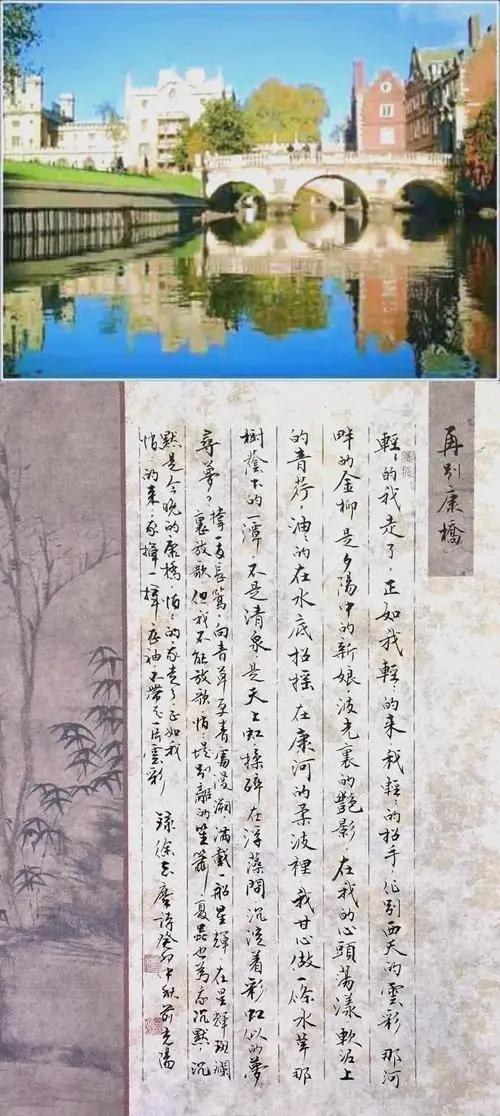 再别康橋
輕〻的我走了，正如我輕〻的來，我輕〻的招手，作别西天的雲彩 那河
畔的金柳是夕陽中的新娘，波光裏的艷影，在我的心頭蕩漾，軟泥上
的青荇，油〻的在水底招摇，在康河的柔波裡，我甘心做一條水草，那
樹蔭下的一潭，不是清泉，是天上虹，揉碎在浮藻間，沉淀着彩虹似的夢
尋夢？撑一支長篙，向青草更青處漫溯，滿載一船星輝，在星輝斑斕
裏放歌，但我不能放歌，悄〻是别離的笙簫，夏蟲也為我沉默，沉
默是今晚的康橋，悄〻的我走了，正如我
悄〻的來，我揮一揮衣袖，不帶走一片雲彩
錄徐志摩詩癸卯中秋前